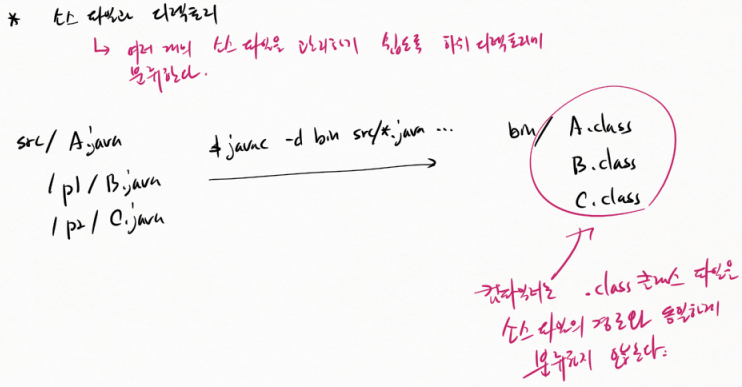 * 소스 파일과 디렉토리
↳ 여러 개의 소스 파일을 관리하기 쉽도록 하위 디렉토리에
분류한다.
src/ A.java
/p1/ B.java
/p2/ C.java
$ javac -d bin src/*.java ...
bin/ A.class
B.class
C.class
컴파일러는 .class 클래스 파일은
소스 파일의 경로와 동일하게
분류하지 않는다.